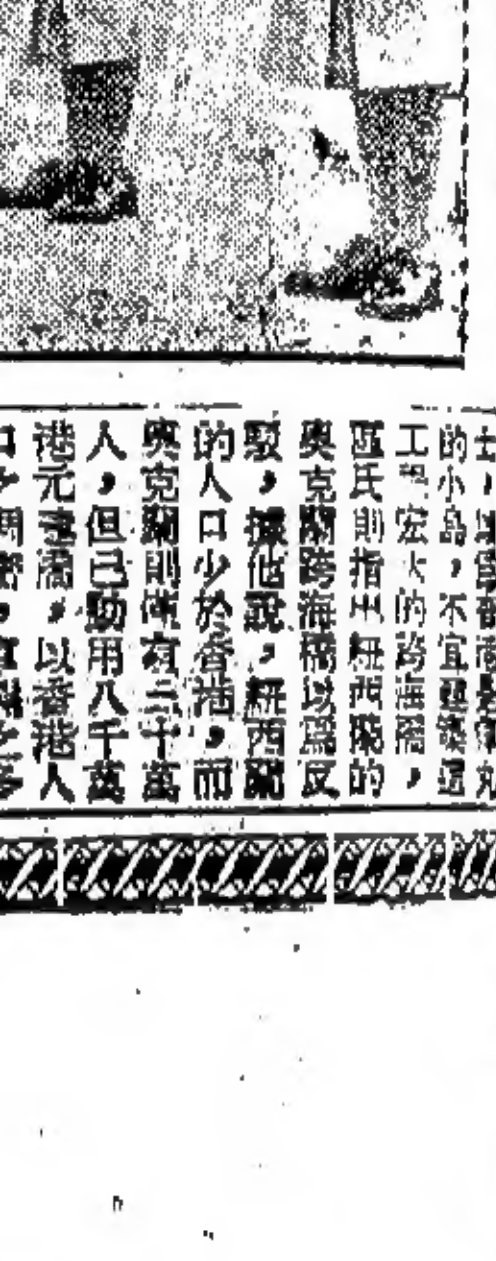 的小島，不宜建築這
工程宏大的跨海橋，
區氏則指出紐西蘭的
奧克蘭跨海橋以爲反
駁，據他說，紐西蘭
的人口少於香港，而
奧克蘭則僅有三十萬
人，但已動用八千萬
港元建橋，以香港人